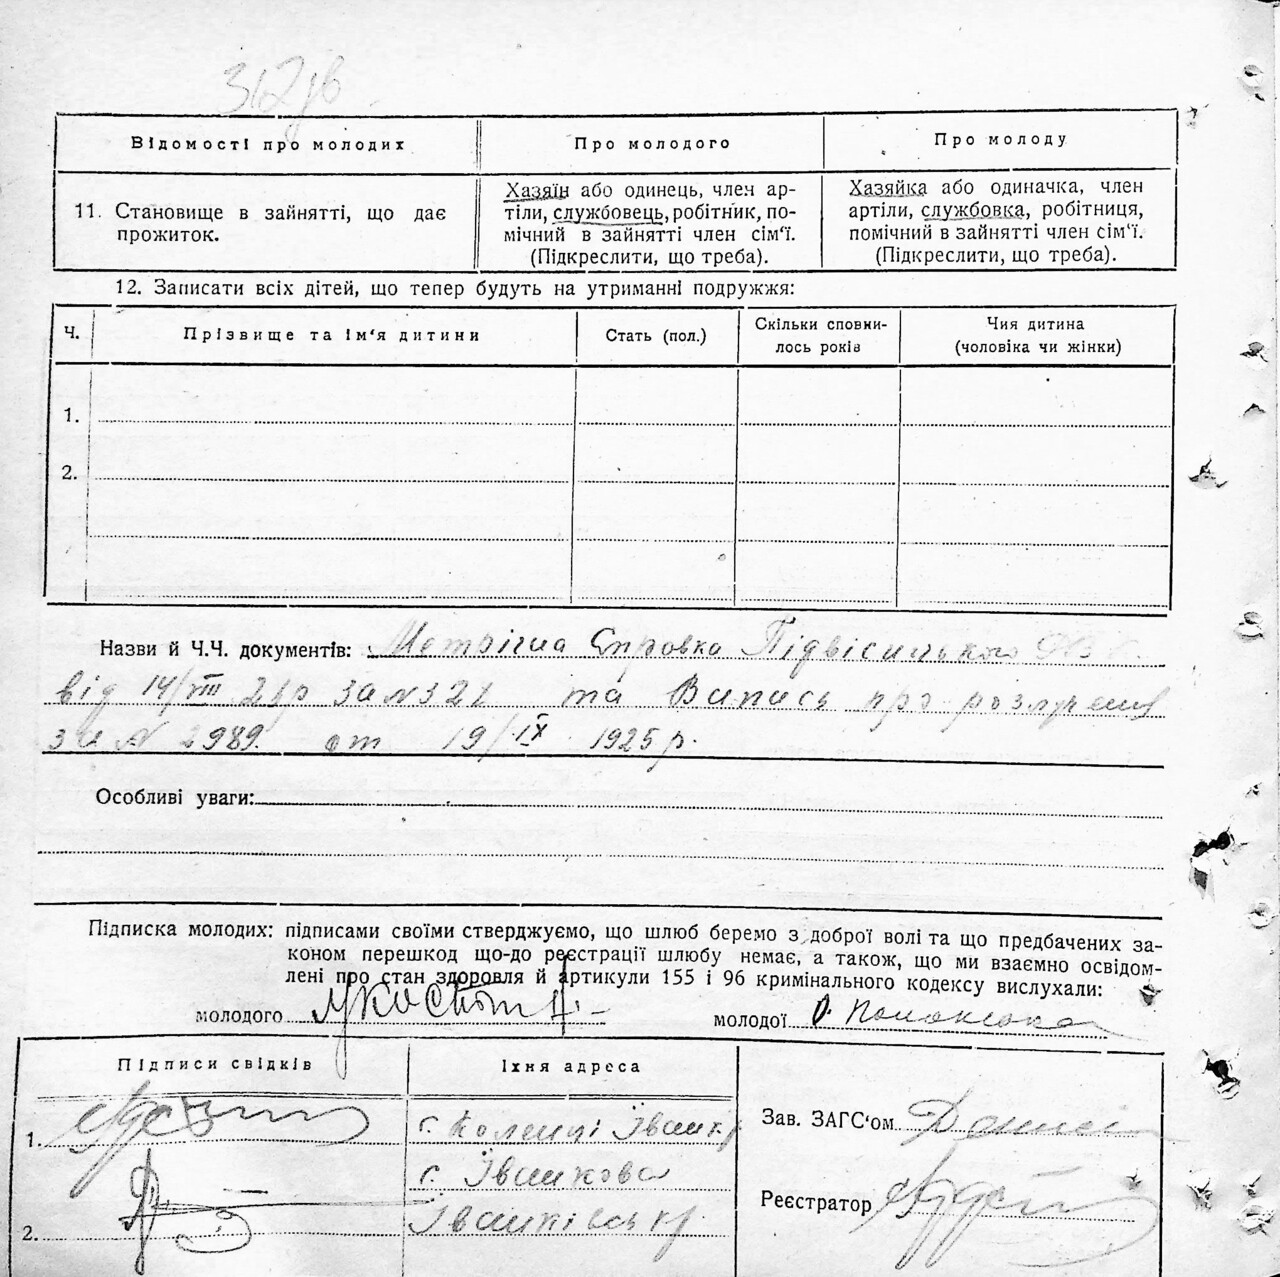 Відомості про молодих
Про молодого
Про молоду
11. Становище в зайнятті, що дає
прожиток.
Хазяїн або одинець, член ар-
тіли, службовець, робітник, по-
мічний в зайнятті член сім'ї.
(Підкреслити, що треба).
Хазяйка або одиначка, член
артіли, службовка, робітниця,
помічний в зайнятті член сім'ї.
(Підкреслити, що треба).
12. Записати всіх дітей, що тепер будуть на утриманні подружжя:
Ч.
Прізвище та ім'я дитини
Стать (пол.)
Скільки сповни-
лось років
Чия дитина
(чоловіка чи жінки)
1.
2.
Назви й Ч.Ч. документів: Метрична Справка Підвісицького
від 14/VIII за № 321 та Випись про розлучення
за № 2989. от 19/IX 1925 р.
Особливі уваги:
Підписка молодих: підписами своїми стверджуємо, що шлюб беремо з доброї волі та що предбачених за-
коном перешкод що-до реєстрації шлюбу немає, а також, що ми взаємно освідом-
лені про стан здоровля й артикули 155 і 96 кримінального кодексу вислухали:
молодого
молодої О.
Підписи свідків
Їхня адреса
1.
с. Коленці Іванк. р.
Зав. ЗАГС'ом
с. Іванкова
Реєстратор
2.
Іванківськ. р.